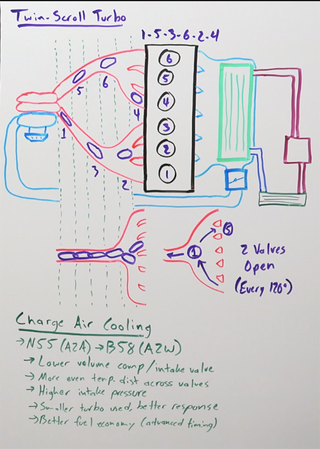 Twin-Scroll Turbo
1-5-3-6-2-4
6
5
4
3
2
1
5
6
4
1
3
2
1
5
2 Valves
Open
(Every 120°)
Charge Air Cooling
→N55 (A2A) →B58 (A2W)
→ Lower volume comp/intake valve
→ More even temp. dist across valves
→ Higher intake pressure
→ Smaller turbo used, better response
→ Better fuel economy (advanced timing)